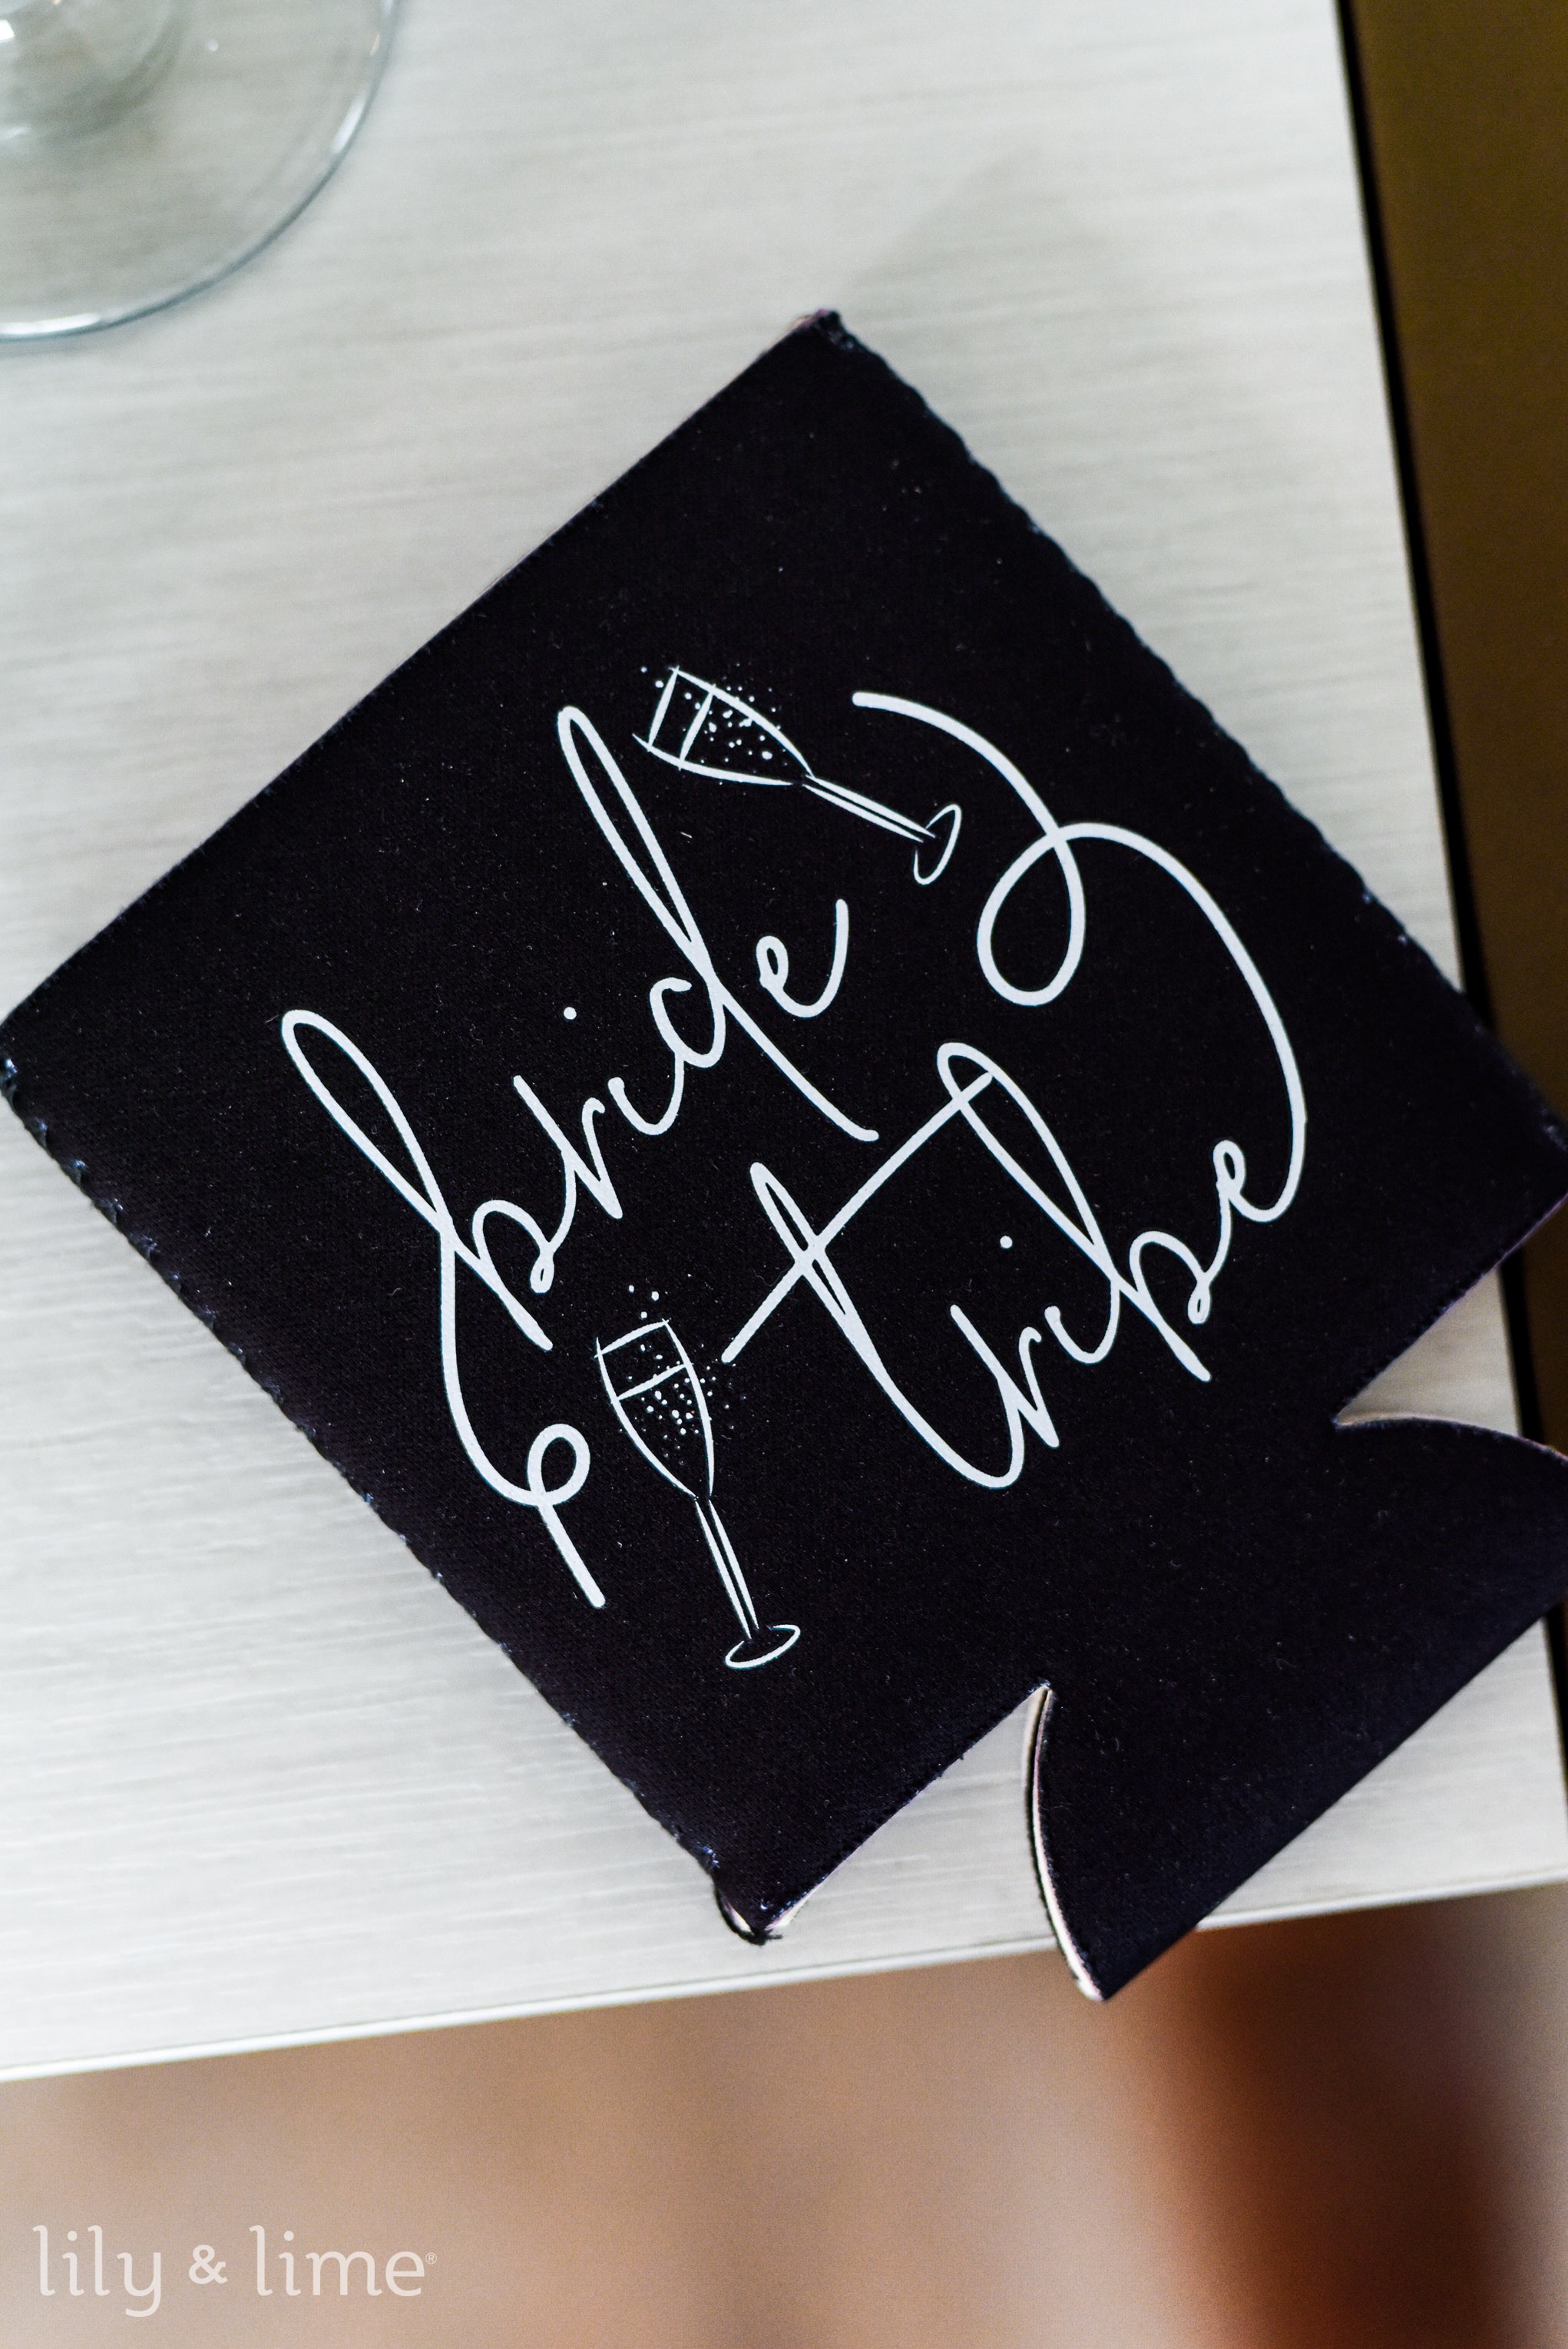 bride
tribe
lily & lime®